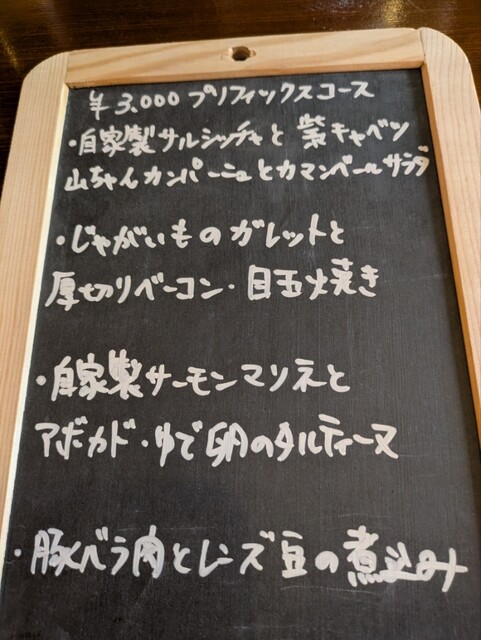 ¥3,000 プリフィックスコース
・自家製サルシッチャと紫キャベツ
山ちゃんカンパーニュとカマンベールサラダ
・じゃがいものガレットと
厚切りベーコン・目玉焼き
・自家製サーモンマリネと
アボカド・ゆで卵のタルティーヌ
・豚バラ肉とレンズ豆の煮込み